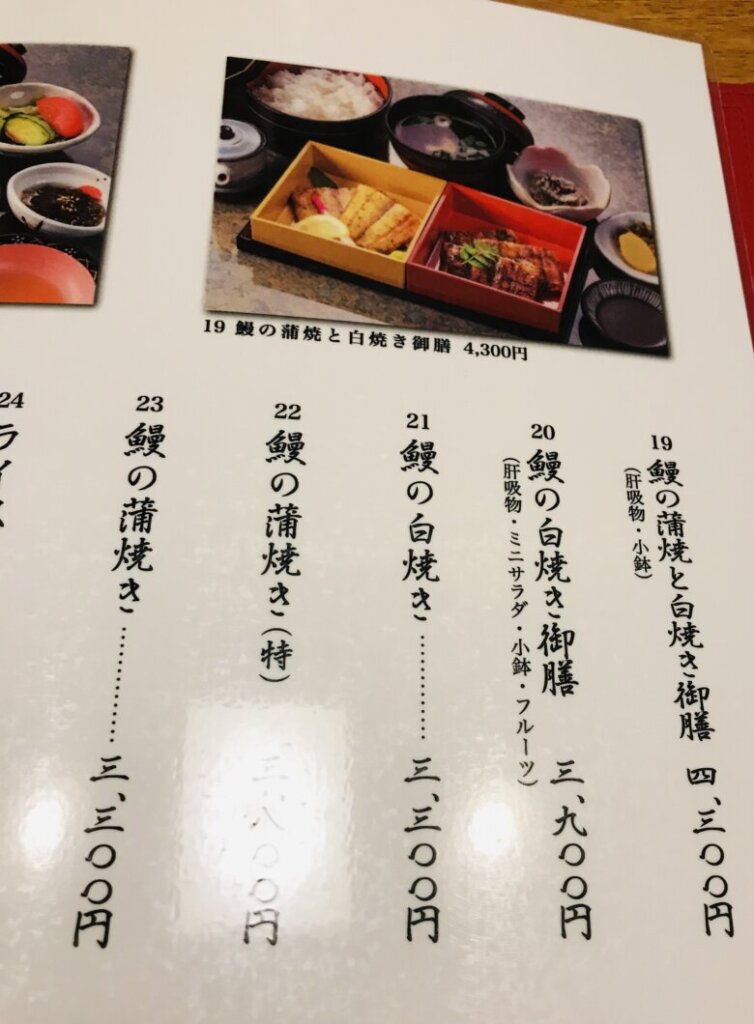 19 鰻の蒲焼と白焼き御膳 4,300円
19 鰻の蒲焼と白焼き御膳 四、三〇〇円
(肝吸物・小鉢)
20 鰻の白焼き御膳 三、九〇〇円
(肝吸物・ミニサラダ・小鉢・フルーツ)
21 鰻の白焼き………… 三、三〇〇円
22 鰻の蒲焼き(特) 三、八〇〇円
23 鰻の蒲焼き………… 三、三〇〇円
24 ライス